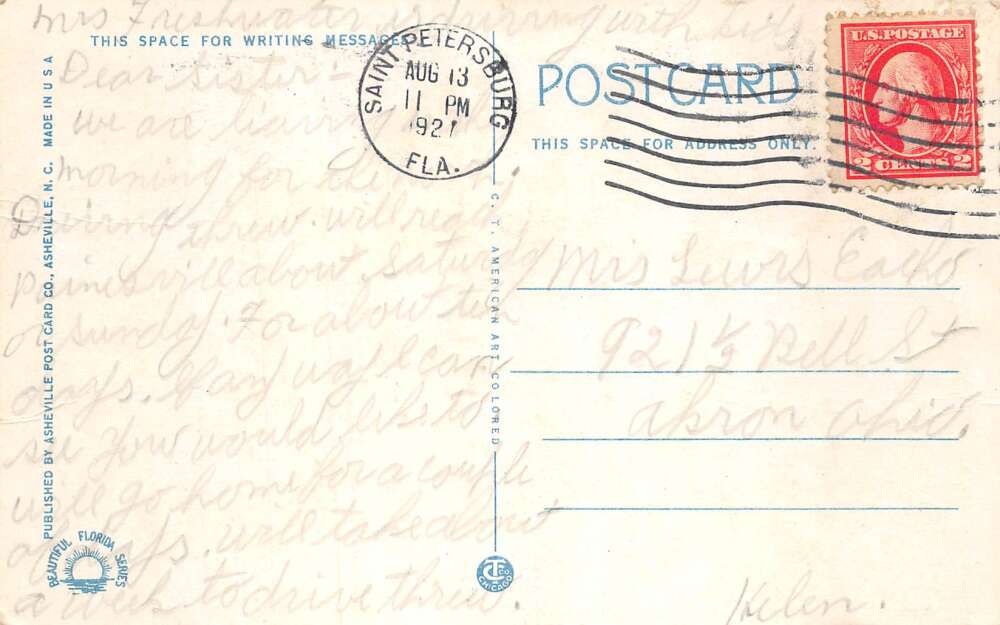 Mrs Freshwater is driving with
THIS SPACE FOR WRITING MESSAGES
Dear Sister:-
we are
morning for the
Driving threw. will reach
Painesville about Saturday
or Sunday. For about ten
days. If any way I can
see you would like to
will go home for a couple
days. will take about
a week to drive threw.
Helen.
SAINT PETERSBURG
AUG 13
11 PM
1921
FLA.
POSTCARD
THIS SPACE FOR ADDRESS ONLY.
U.S. POSTAGE
2 CENTS 2
Mrs Lewis
921 ½ Bell St
Akron Ohio.
PUBLISHED BY ASHEVILLE POST CARD CO., ASHEVILLE, N. C. MADE IN U S A
C. T. AMERICAN ART COLORED
BEAUTIFUL FLORIDA SERIES
CT CO. CHICAGO